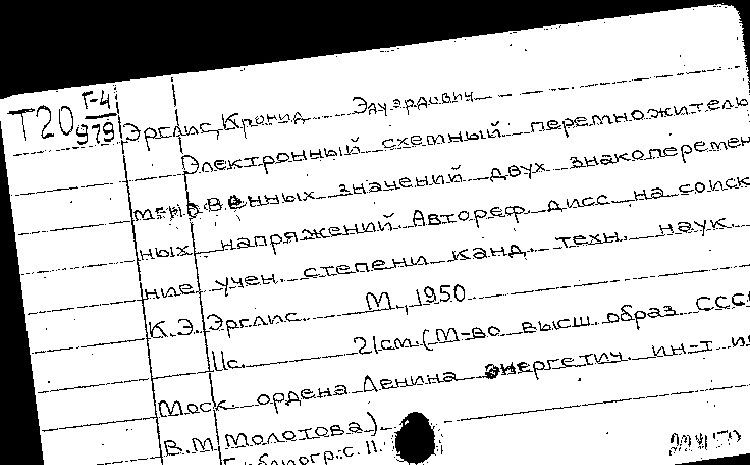 Т20 Г-4
979
Эрглис, Кронид Эдуардович
Электронный схемный перемножитель
мгновенных значений двух знакоперемен
ных напряжений. Автореф. дисс. на соиск
ние учен. степени канд. техн. наук.
К.Э. Эрглис. М., 1950
11с. 21см. (М-во высш. образ. СССР
Моск. ордена Ленина энергетич. ин-т и
В.М. Молотова).
Библиогр.: с. 11.